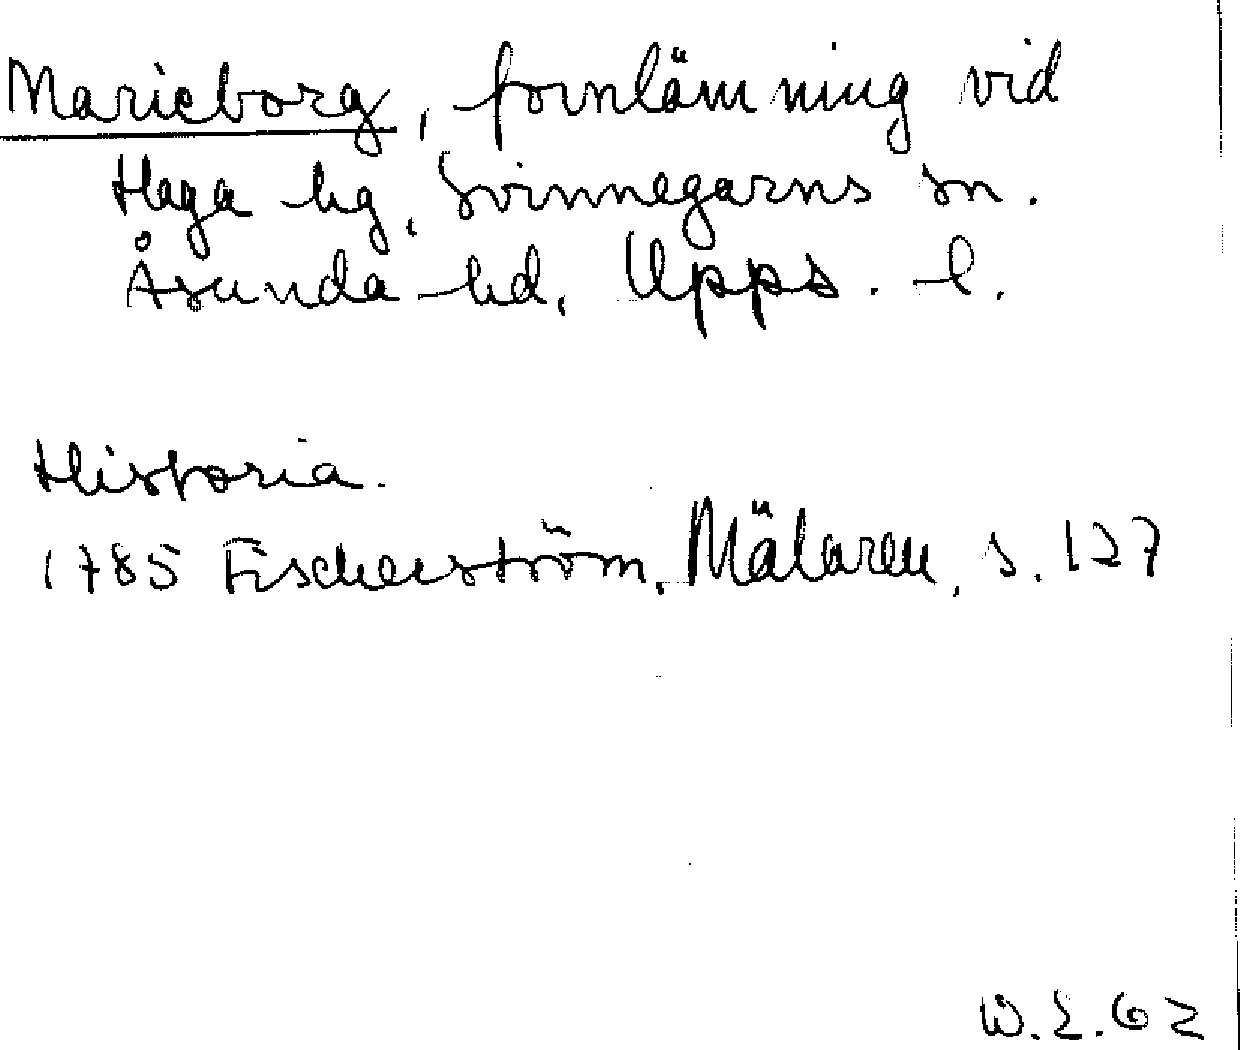 Marieborg, fornlämning vid
Haga hg, Svinnegarns sn.
Åsunda hd, Upps. l.
Historia.
1785 Fischerström, Mälaren, s. 127
W.E.62